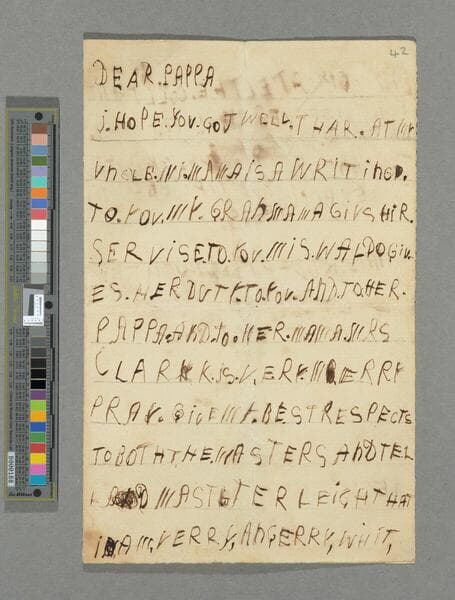 42
DEAR.PAPPA
j.HOPE.YOU.GOT WELL.THAR.AT MY
VNCLE.MI.MAMA IS A WRITING.
TO.YOU.MY.GRANMAMA GIVS HIR.
SERVISE.TO.YOU.MIS.WALDO GIV
ES.HER DUTY.TO.YOU.AND.TO HER.
PAPPA.AND.to.HER.MAMA.MRS
CLARK.is.VERY.MERRY
PRAY.GIVE MY.BEST RESPECTS
TO BOTH THE MASTERS AND TEL
MASTER LEIGH THAT
I AM,VERRY,ANGERRY,WHIT,